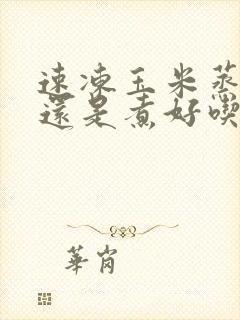 速凍玉米蒸
還是煮好喫
華崗